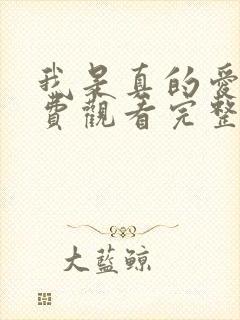 我是真的愛
費觀看完整
大藍鯨